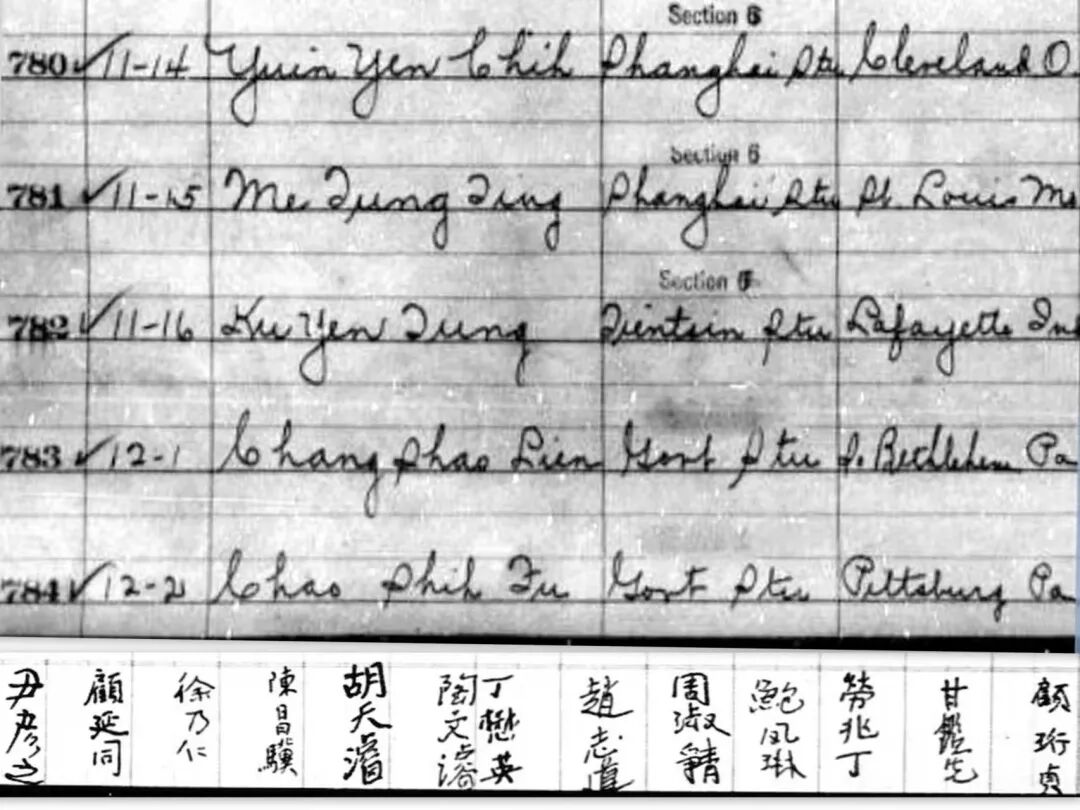 Section 6
780 ✓ 11-14 Yuin Yen Chih Shanghai Stu Cleveland O.
Section 6
781 ✓ 11-15 Me Tung Ting Shanghai Stu St. Louis Mo
Section 6
782 ✓ 11-16 Ku Yen Tung Tientsin Stu Lafayette Ind
783 ✓ 12-1 Chang Shao Lien Govt Stu So. Bethlehem Pa
784 ✓ 12-2 Chao Shih Fu Govt Stu Pittsburg Pa
尹彦之
顧延同
徐乃仁
陳昌驥
胡天濬
陶文濬
丁懋英
趙志道
周淑清
鮑鳳琳
勞兆丁
甘鑑先
顧珩貞